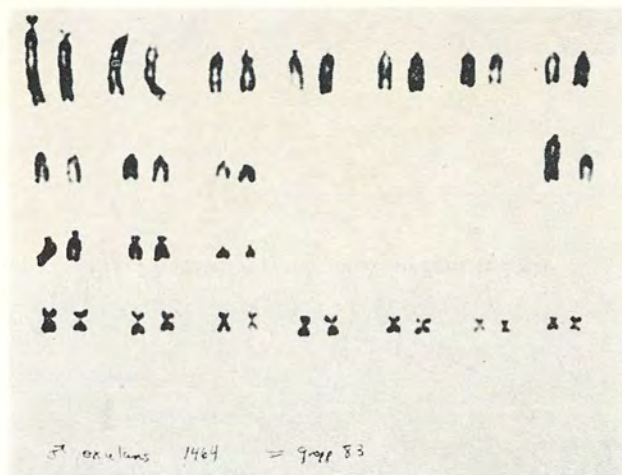 ♂ exulans 1464 = Gropp 83